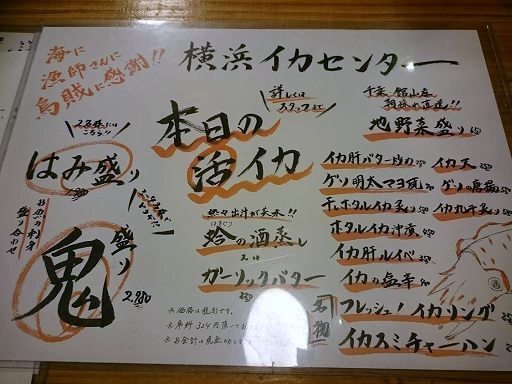 海に
漁師さんに
烏賊に感謝!!
横浜イカセンター
詳しくは
スタッフまで
本日の
活イカ
千葉 館山産
朝採れ直送!!
地野菜盛り
2名様には
こちら!!
はみ盛り
お魚の刺身
盛り合わせ
鬼盛り
2,980
熱々出汁が美味!!
はまぐり
蛤の酒蒸し
又は
ガーリックバター
イカ肝バター炒め
イカ天
ゲソ明太マヨ頂
ゲソの唐揚
ホタルイカ沖漬
イカ肝ルイベ
イカの塩辛
名物
フレッシュ!イカリング
イカスミチャーハン
※価格は税別です。